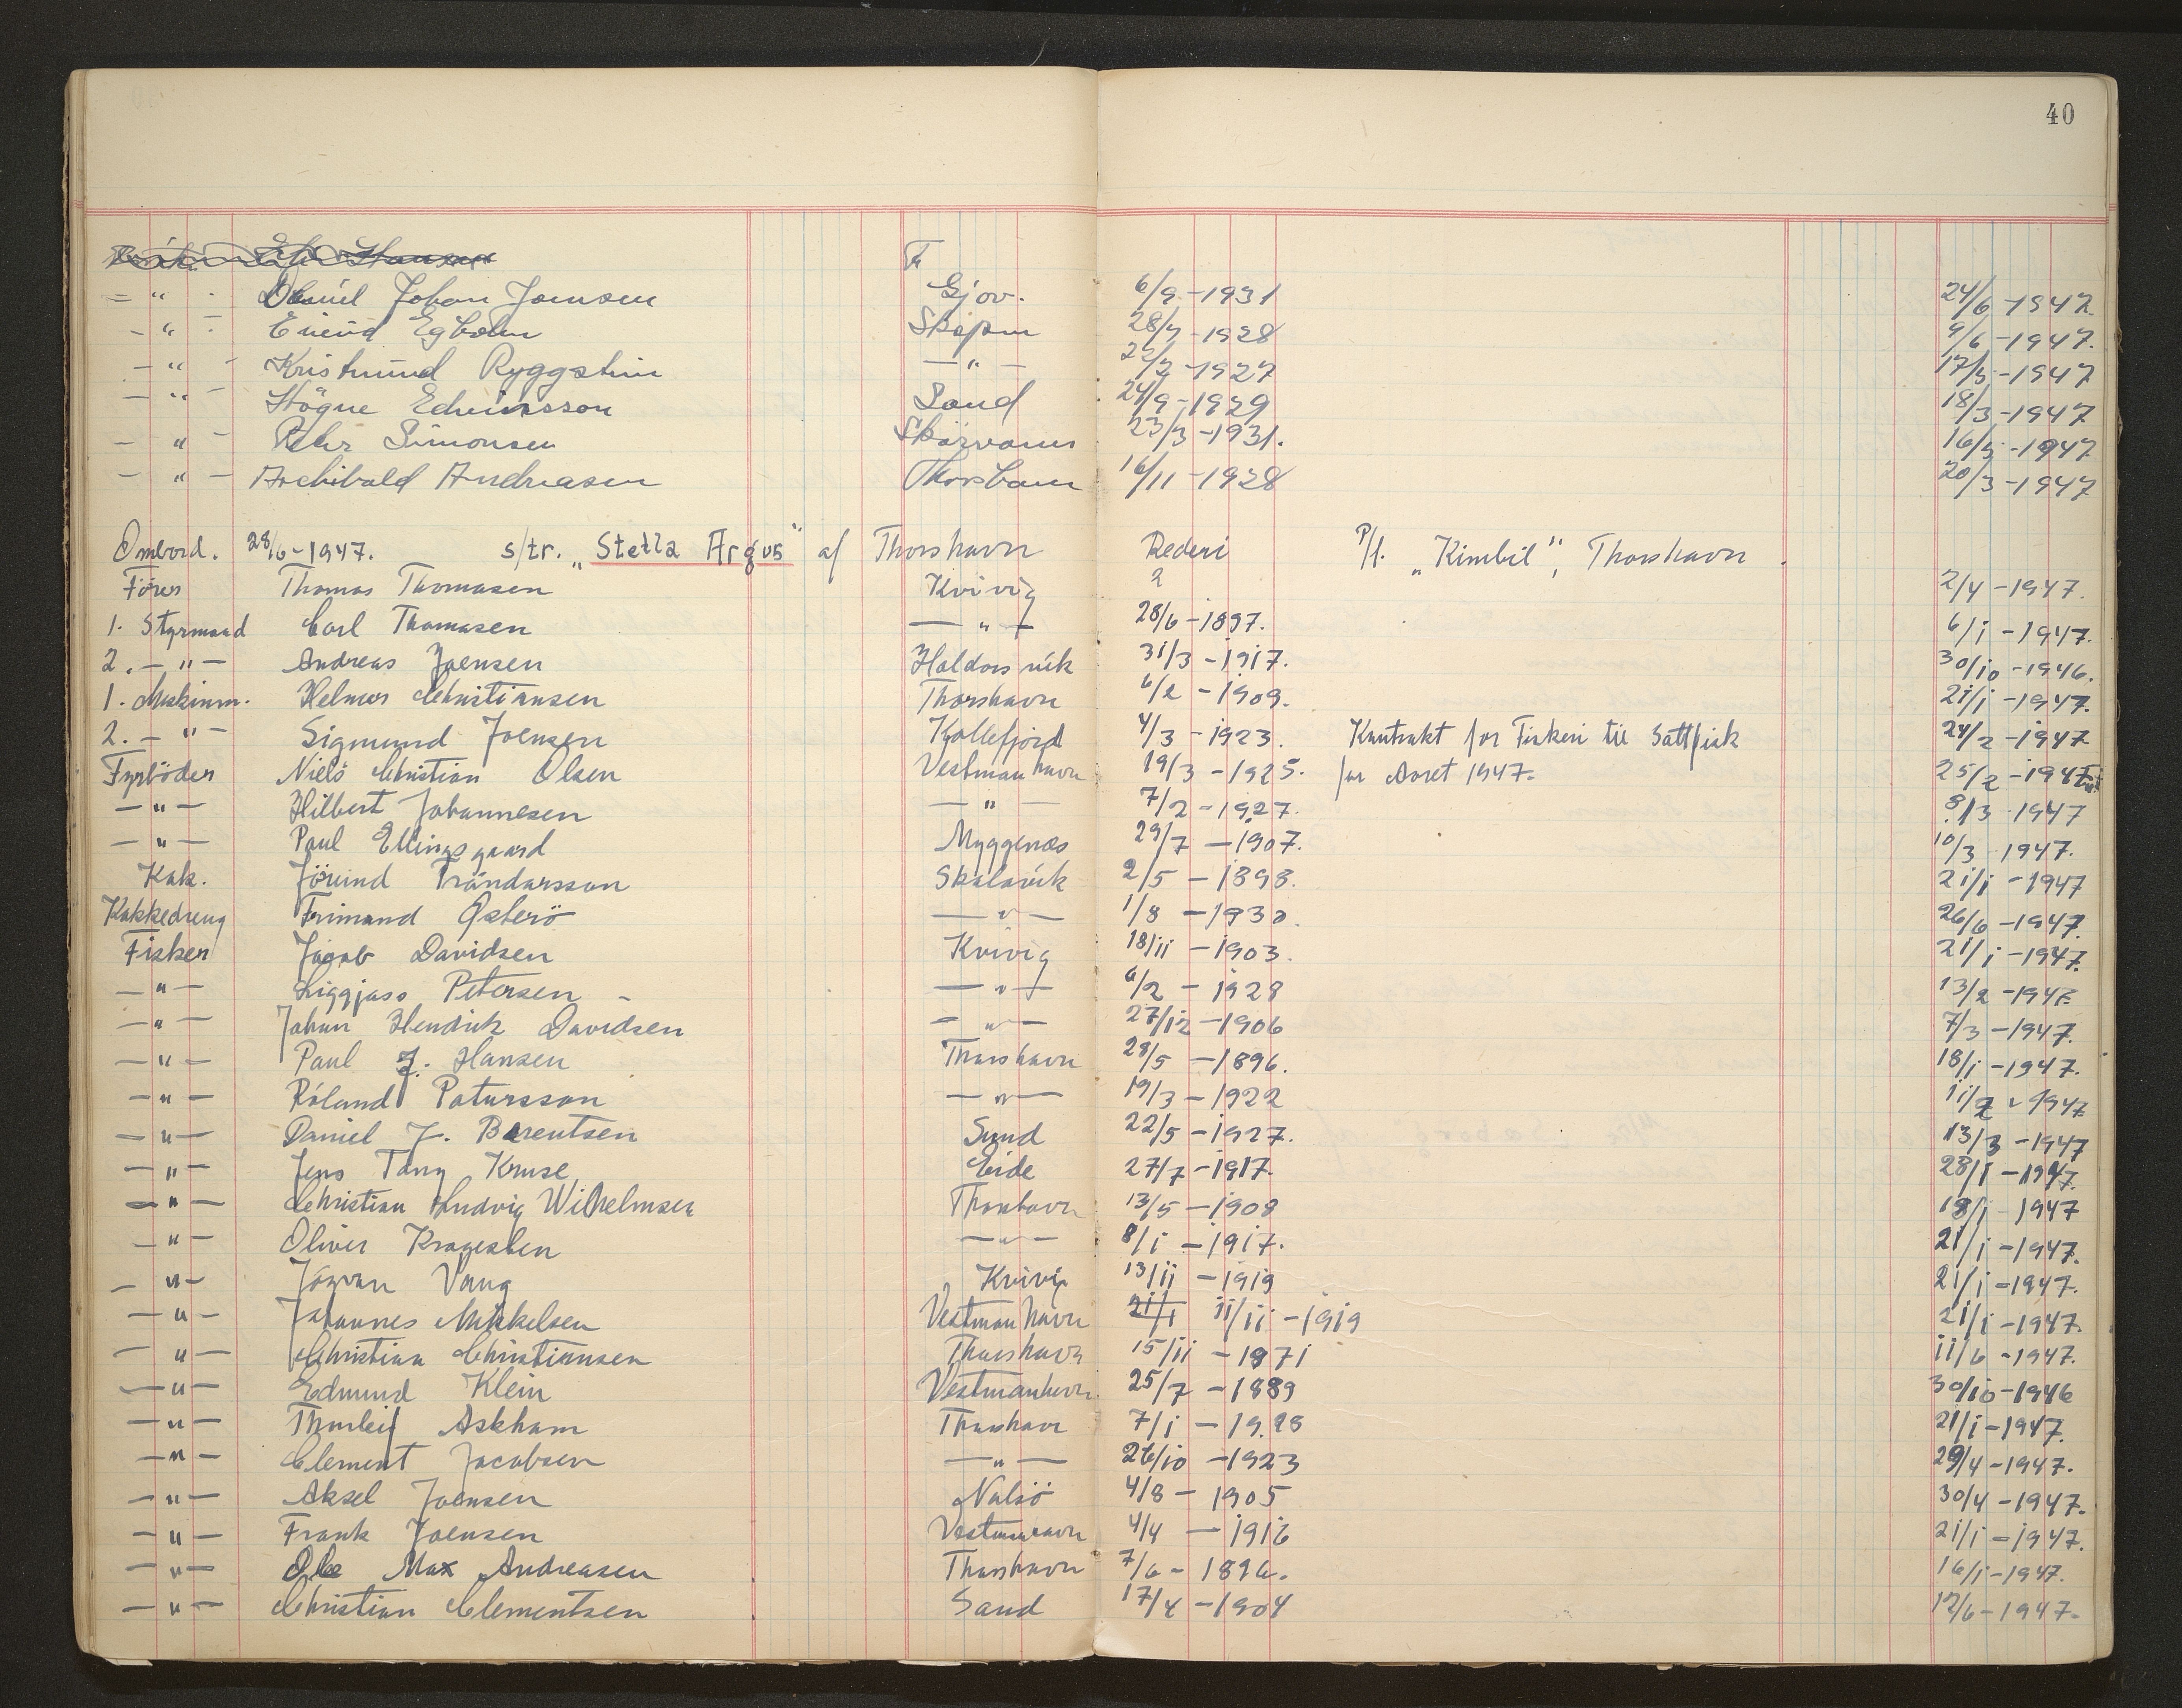 40
F
— " — Daniel Johan Joensen Gjov. 6/9 - 1931 24/6 - 1947.
— " — Eivind Egholm Skopun 28/7 - 1928 9/6 - 1947.
— " — Kristmund Ryggstein — " — 22/2 - 1927 17/3 - 1947
— " — Högne Edvinsson Sand 24/9 - 1929 18/3 - 1947
— " — Peter Simonsen 23/3 - 1931. 16/5 - 1947
— " — Archibald Andreasen Thorshavn 16/11 - 1928 20/3 - 1947
Ombord. 28/6 - 1947. s/tr. „Stella Argus" af Thorshavn Rederi P/f. „Kimbil", Thorshavn.
Förer Thomas Thomasen Kvivig ? 2/4 - 1947.
1. Styrmand Carl Thomasen — " — 28/6 - 1897. 6/1 - 1947.
2. — " — Andreas Joensen Haldorsvik 31/3 - 1917. 30/10 - 1946.
1. Maskinm. Helmer Christiansen Thorshavn 6/2 - 1909. 21/1 - 1947.
2. — " — Sigmund Joensen Kollefjord 4/3 - 1923. Kontrakt for Fiskeri til Saltfisk 24/2 - 1947
Fyrböder Niels Christian Olsen Vestmanhavn 19/3 - 1925. for Aaret 1947. 25/2 - 1947
— " — Hilbert Johannesen — " — 7/2 - 1927. 8/3 1947
— " — Paul Ellingsgaard Myggenæs 29/7 — 1907. 10/3 1947.
Kok. Jörund Trándarsson Skalavik 2/5 — 1898. 21/1 - 1947
Kokkedreng Frimand Österö — " — 1/8 — 1930. 26/6 - 1947.
Fisker Jacob Davidsen Kvivig 18/11 — 1903. 21/1 - 1947.
— " — Liggjass Petersen — — " — 6/2 — 1928 13/2 - 1947.
— " — Johan Hendrik Davidsen — " — 27/12 - 1906 7/3 - 1947.
— " — Paul J. Hansen Thorshavn 28/5 — 1896. 18/1 - 1947.
— " — Róland Patursson — " — 19/3 — 1922 11/2 - 1947
— " — Daniel J. Berentsen Sund 22/5 - 1927. 13/3 - 1947
— " — Jens Tang Kruse Eide 27/7 - 1917. 28/1 - 1947.
— " — Christian Ludvig Wilhelmsen Thorshavn 13/5 — 1908 18/1 1947
— " — Oliver Kragesteen — " — 8/1 — 1917. 21/1 - 1947.
— " — Jógvan Vang Kvivig 13/11 — 1919 21/1 - 1947.
— " — Johannes Mikkelsen Vestmanhavn 21/1 11/11 - 1919 21/1 - 1947.
— " — Christian Christiansen Thorshavn 15/11 - 1871 11/6 - 1947.
— " — Edmund Klein Vestmanhavn 25/7 - 1889 30/10 - 1946
— " — Thorleif Askham Thorshavn 7/1 — 1928 21/1 - 1947.
— " — Clement Jacobsen — " — 26/10 - 1923 29/4 - 1947.
— " — Aksel Joensen Nolsö 4/8 - 1905 30/4 - 1947.
— " — Frank Joensen Vestmanhavn 4/4 — 1916 21/1 - 1947.
— " — Ole Max Andreasen Thorshavn 7/6 - 1896. 16/1 - 1947.
— " — Christian Clementsen Sand 17/4 - 1904 17/6 - 1947.